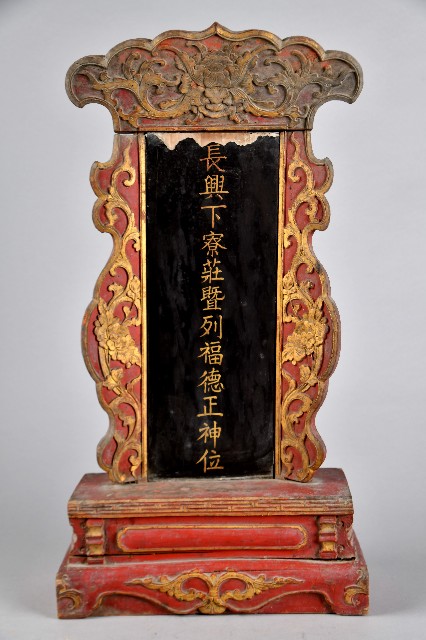 長興下寮莊暨列福德正神位